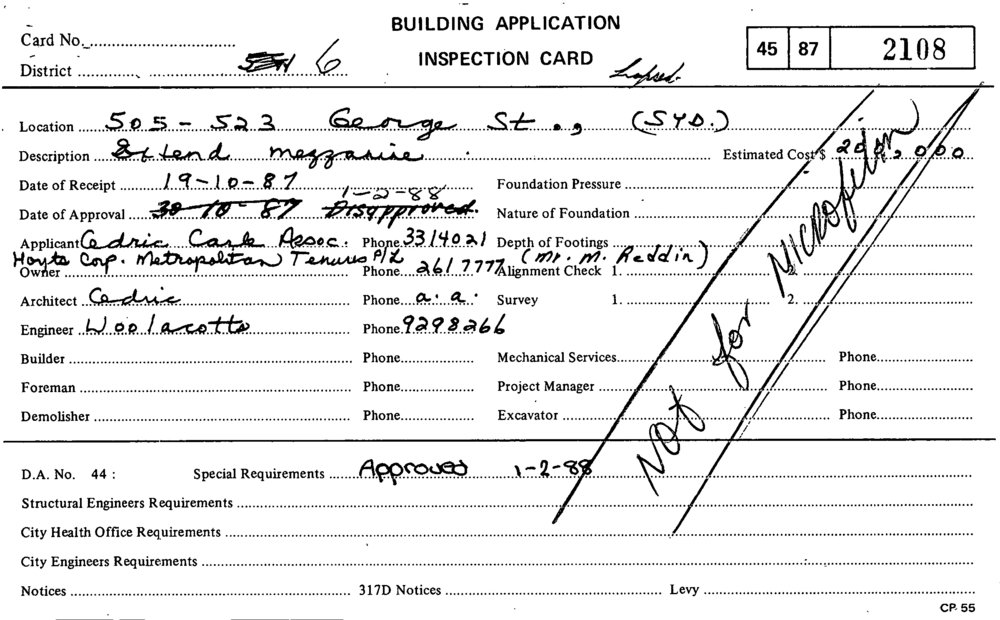 BUILDING APPLICATION
INSPECTION CARD
Card No.
District 6
Lapsed.
45 87 2108
Location 505 - 523 George St., (SYD.)
Description Extend mezzanine
Estimated Cost $ 200,000
Date of Receipt 19-10-87
Foundation Pressure
1-2-88
Date of Approval 30-10-87 Disapproved.
Nature of Foundation
Applicant Cedric Carle Assoc. Phone 3314021
Depth of Footings
Hoyts Corp. Metropolitan Tenures P/L (Mr. M. Reddin)
Owner Phone 261 7777
Alignment Check 1. 2.
Architect Cedric Phone a. a.
Survey 1. 2.
Engineer Woolacotts Phone 9298266
Builder Phone
Mechanical Services Phone
Foreman Phone
Project Manager Phone
Demolisher Phone
Excavator Phone
Not for Microfilm
D.A. No. 44 : Special Requirements Approved 1-2-88
Structural Engineers Requirements
City Health Office Requirements
City Engineers Requirements
Notices 317D Notices Levy
CP. 55